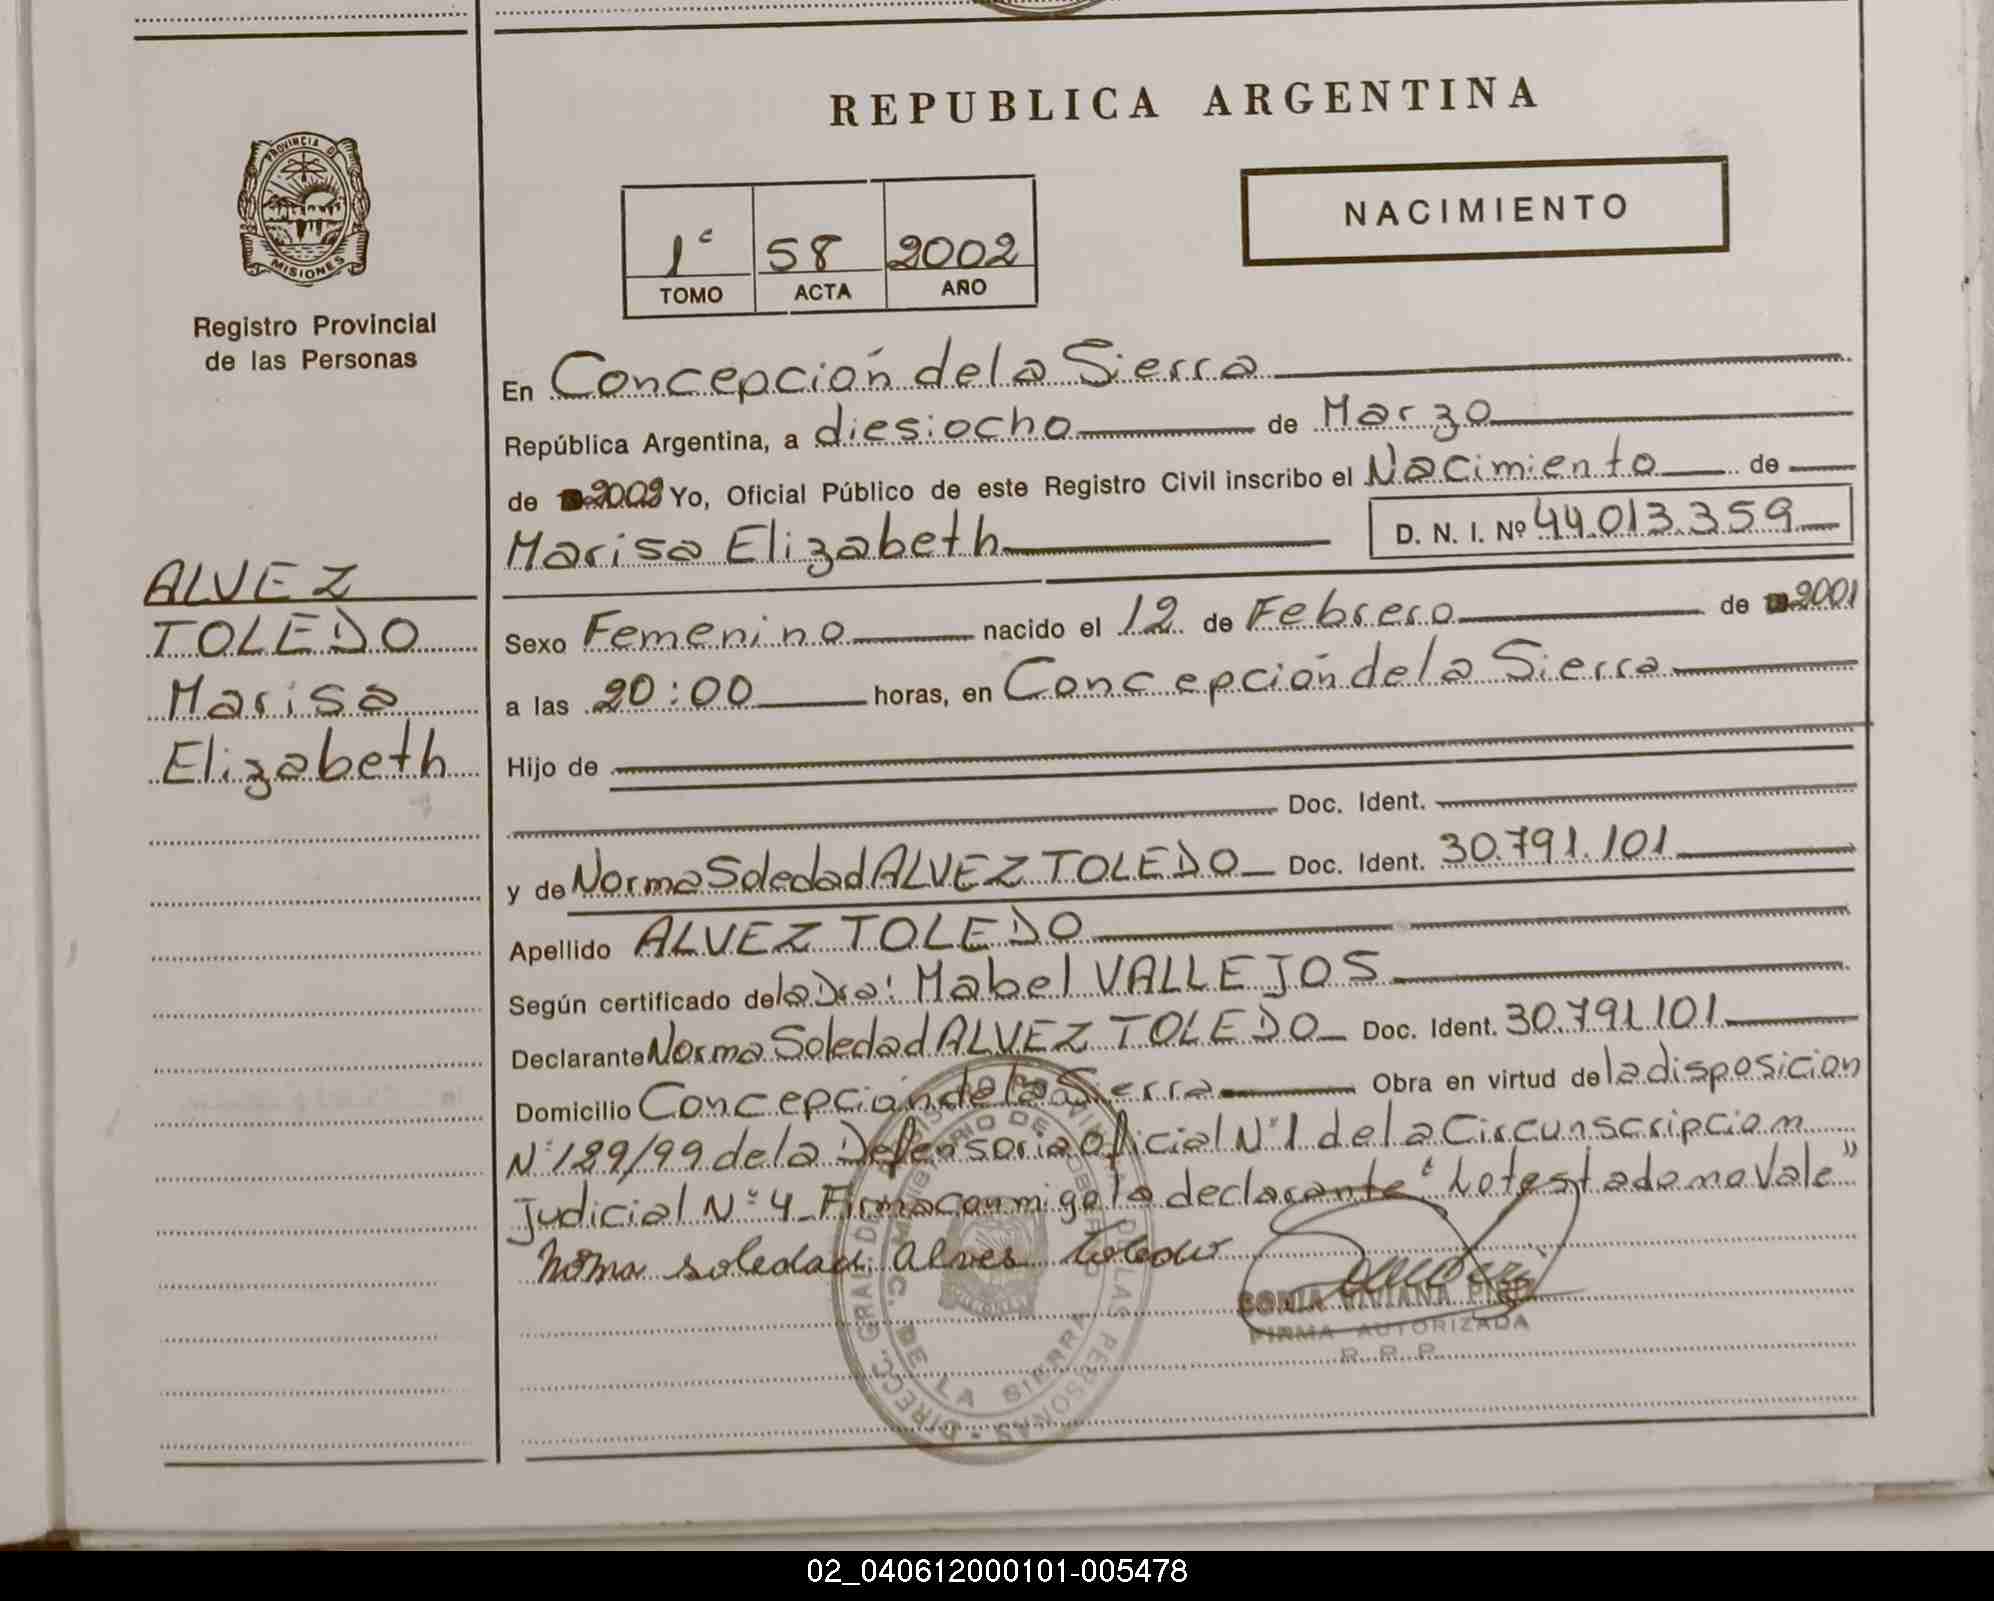 REPUBLICA ARGENTINA
PROVINCIA D
MISIONES
Registro Provincial
de las Personas
NACIMIENTO
1º 58 2002
TOMO ACTA AÑO
En Concepción de la Sierra
República Argentina, a diesiocho de Marzo
de 2002 Yo, Oficial Público de este Registro Civil inscribo el Nacimiento de
Marisa Elizabeth D. N. I. Nº 44.013.359
ALVEZ
TOLEDO
Marisa
Elizabeth
Sexo Femenino nacido el 12 de Febrero de 2001
a las 20:00 horas, en Concepción de la Sierra
Hijo de
Doc. Ident.
y de Norma Soledad ALVEZ TOLEDO Doc. Ident. 30.791.101
Apellido ALVEZ TOLEDO
Según certificado de la Dra: Mabel VALLEJOS
Declarante Norma Soledad ALVEZ TOLEDO Doc. Ident. 30.791.101
Domicilio Concepción de la Sierra Obra en virtud de la disposicion
Nº 189/99 de la Defensoria Oficial Nº 1 de la Circunscripciom
Judicial Nº 4 Firma conmigo la declarante "Lo testado no Vale"
Norma soledad Alves Toledo
SONIA VIVIANA
FIRMA AUTORIZADA
R. R. P.
DIRECC. GRAL. DE LAS PERSONAS
MINISTERIO DE GOBIERNO
C. DE LA SIERRA
02_040612000101-005478